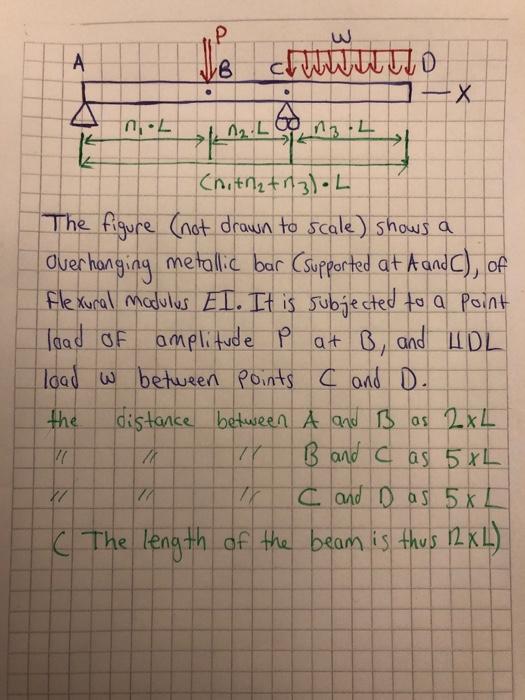 P
W
A
B
C
D
X
n1·L
n2·L
n3·L
(n1+n2+n3)·L
The figure (not drawn to scale) shows a
Overhanging metallic bar (Supported at A and C), of
flexural modulus EI. It is subjected to a point
load of amplitude P at B, and UDL
load w between points C and D.
the distance between A and B as 2xL
" " " B and C as 5xL
" " " C and D as 5xL
( The length of the beam is thus 12xL)